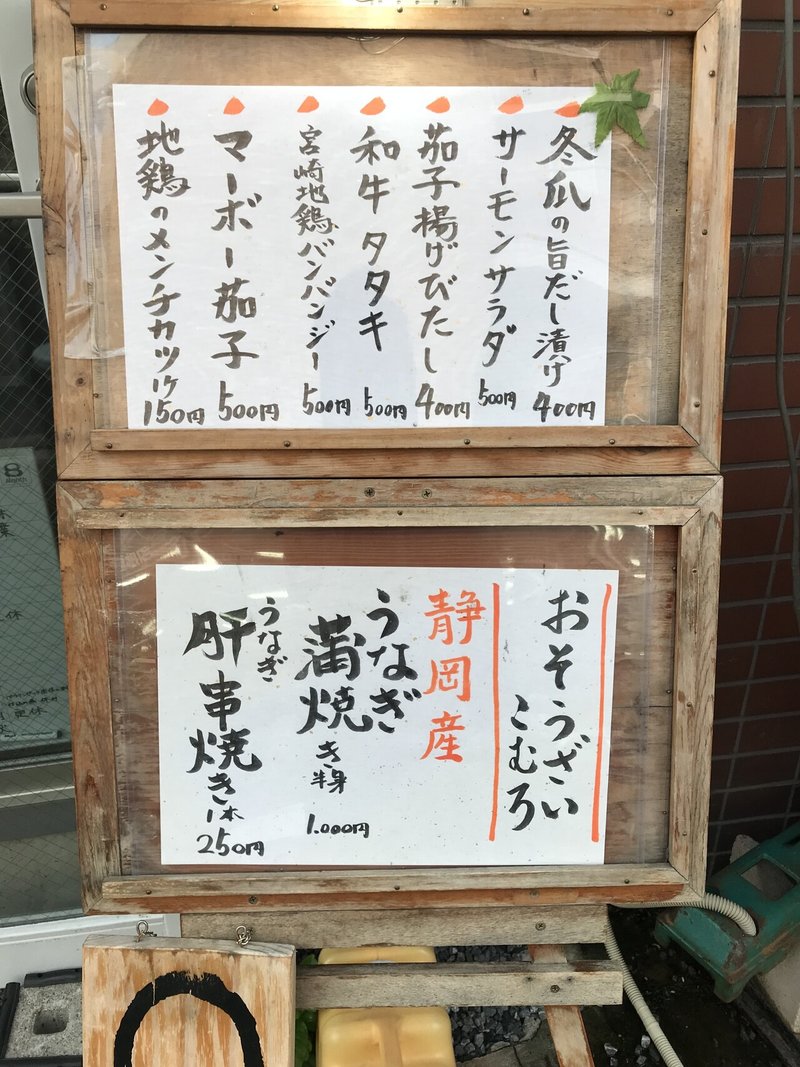 冬瓜の旨だし漬け 400円
サーモンサラダ 500円
茄子揚げびたし 400円
和牛タタキ 500円
宮崎地鶏バンバンジー 500円
マーボー茄子 500円
地鶏のメンチカツ1ケ 150円
おそうざい
こむろ
静岡産
うなぎ
蒲焼き半身 1.000円
うなぎ
肝串焼き1本 250円
8